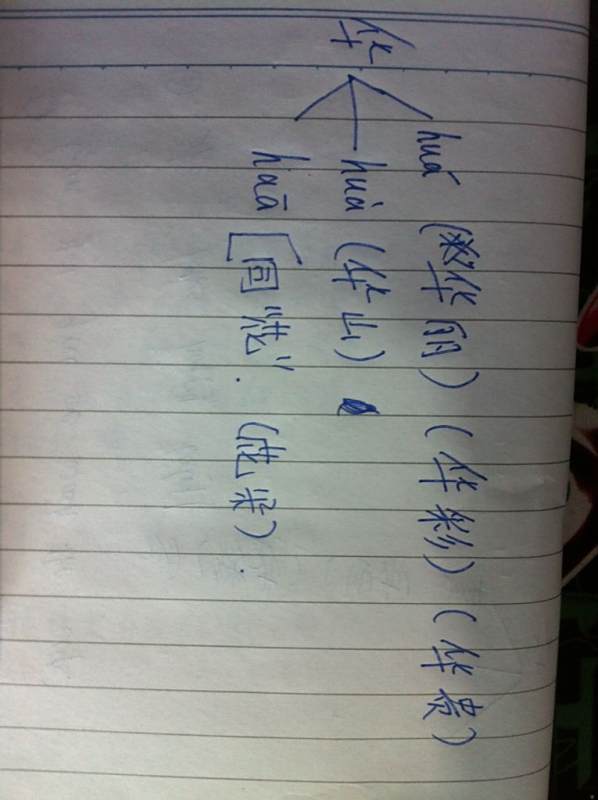 华
huá (华丽) (华彩) (华贵)
huà (华山)
huā [同“花”. (花).